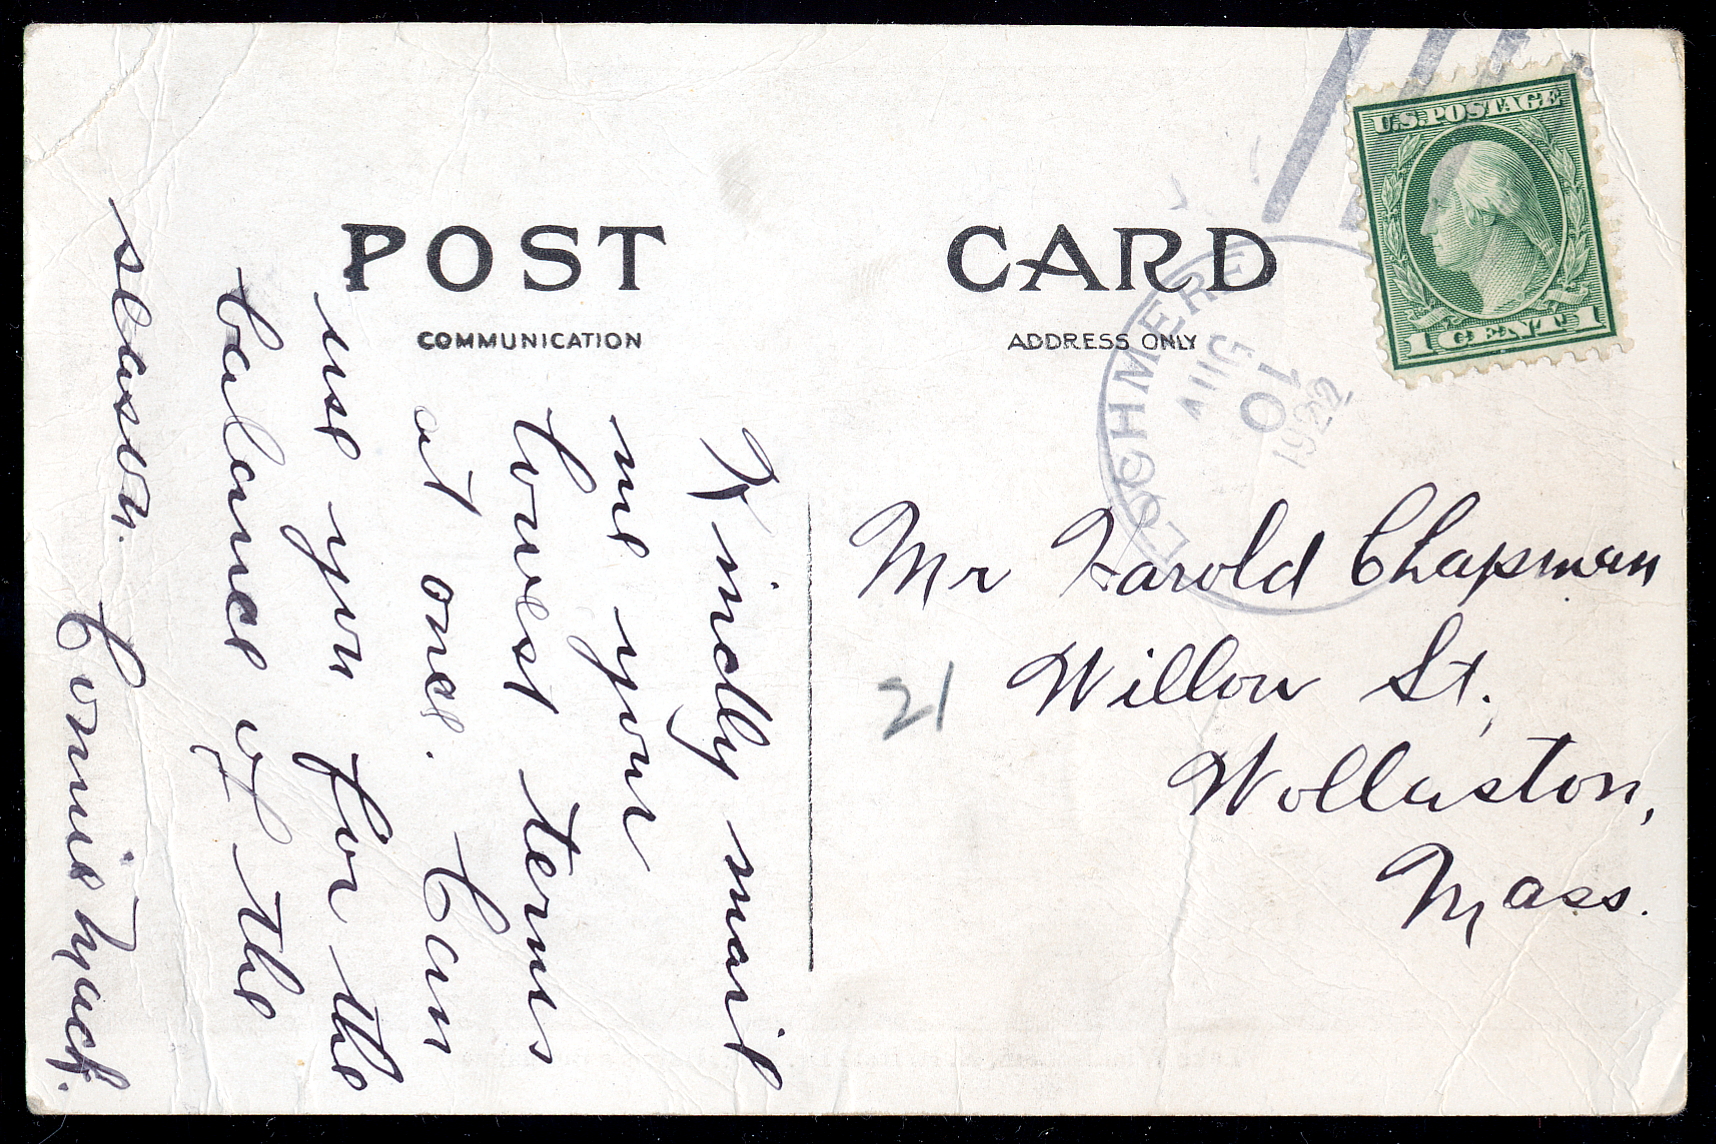 POST CARD
COMMUNICATION
ADDRESS ONLY
U.S. POSTAGE
1 CENT 1
AUG
10
1922
Kindly mail
me your
lowest terms
at once. Can
use you for the
balance of the
season.
Mr Harold Chapman
Willow St.,
Wollaston,
Mass.
21